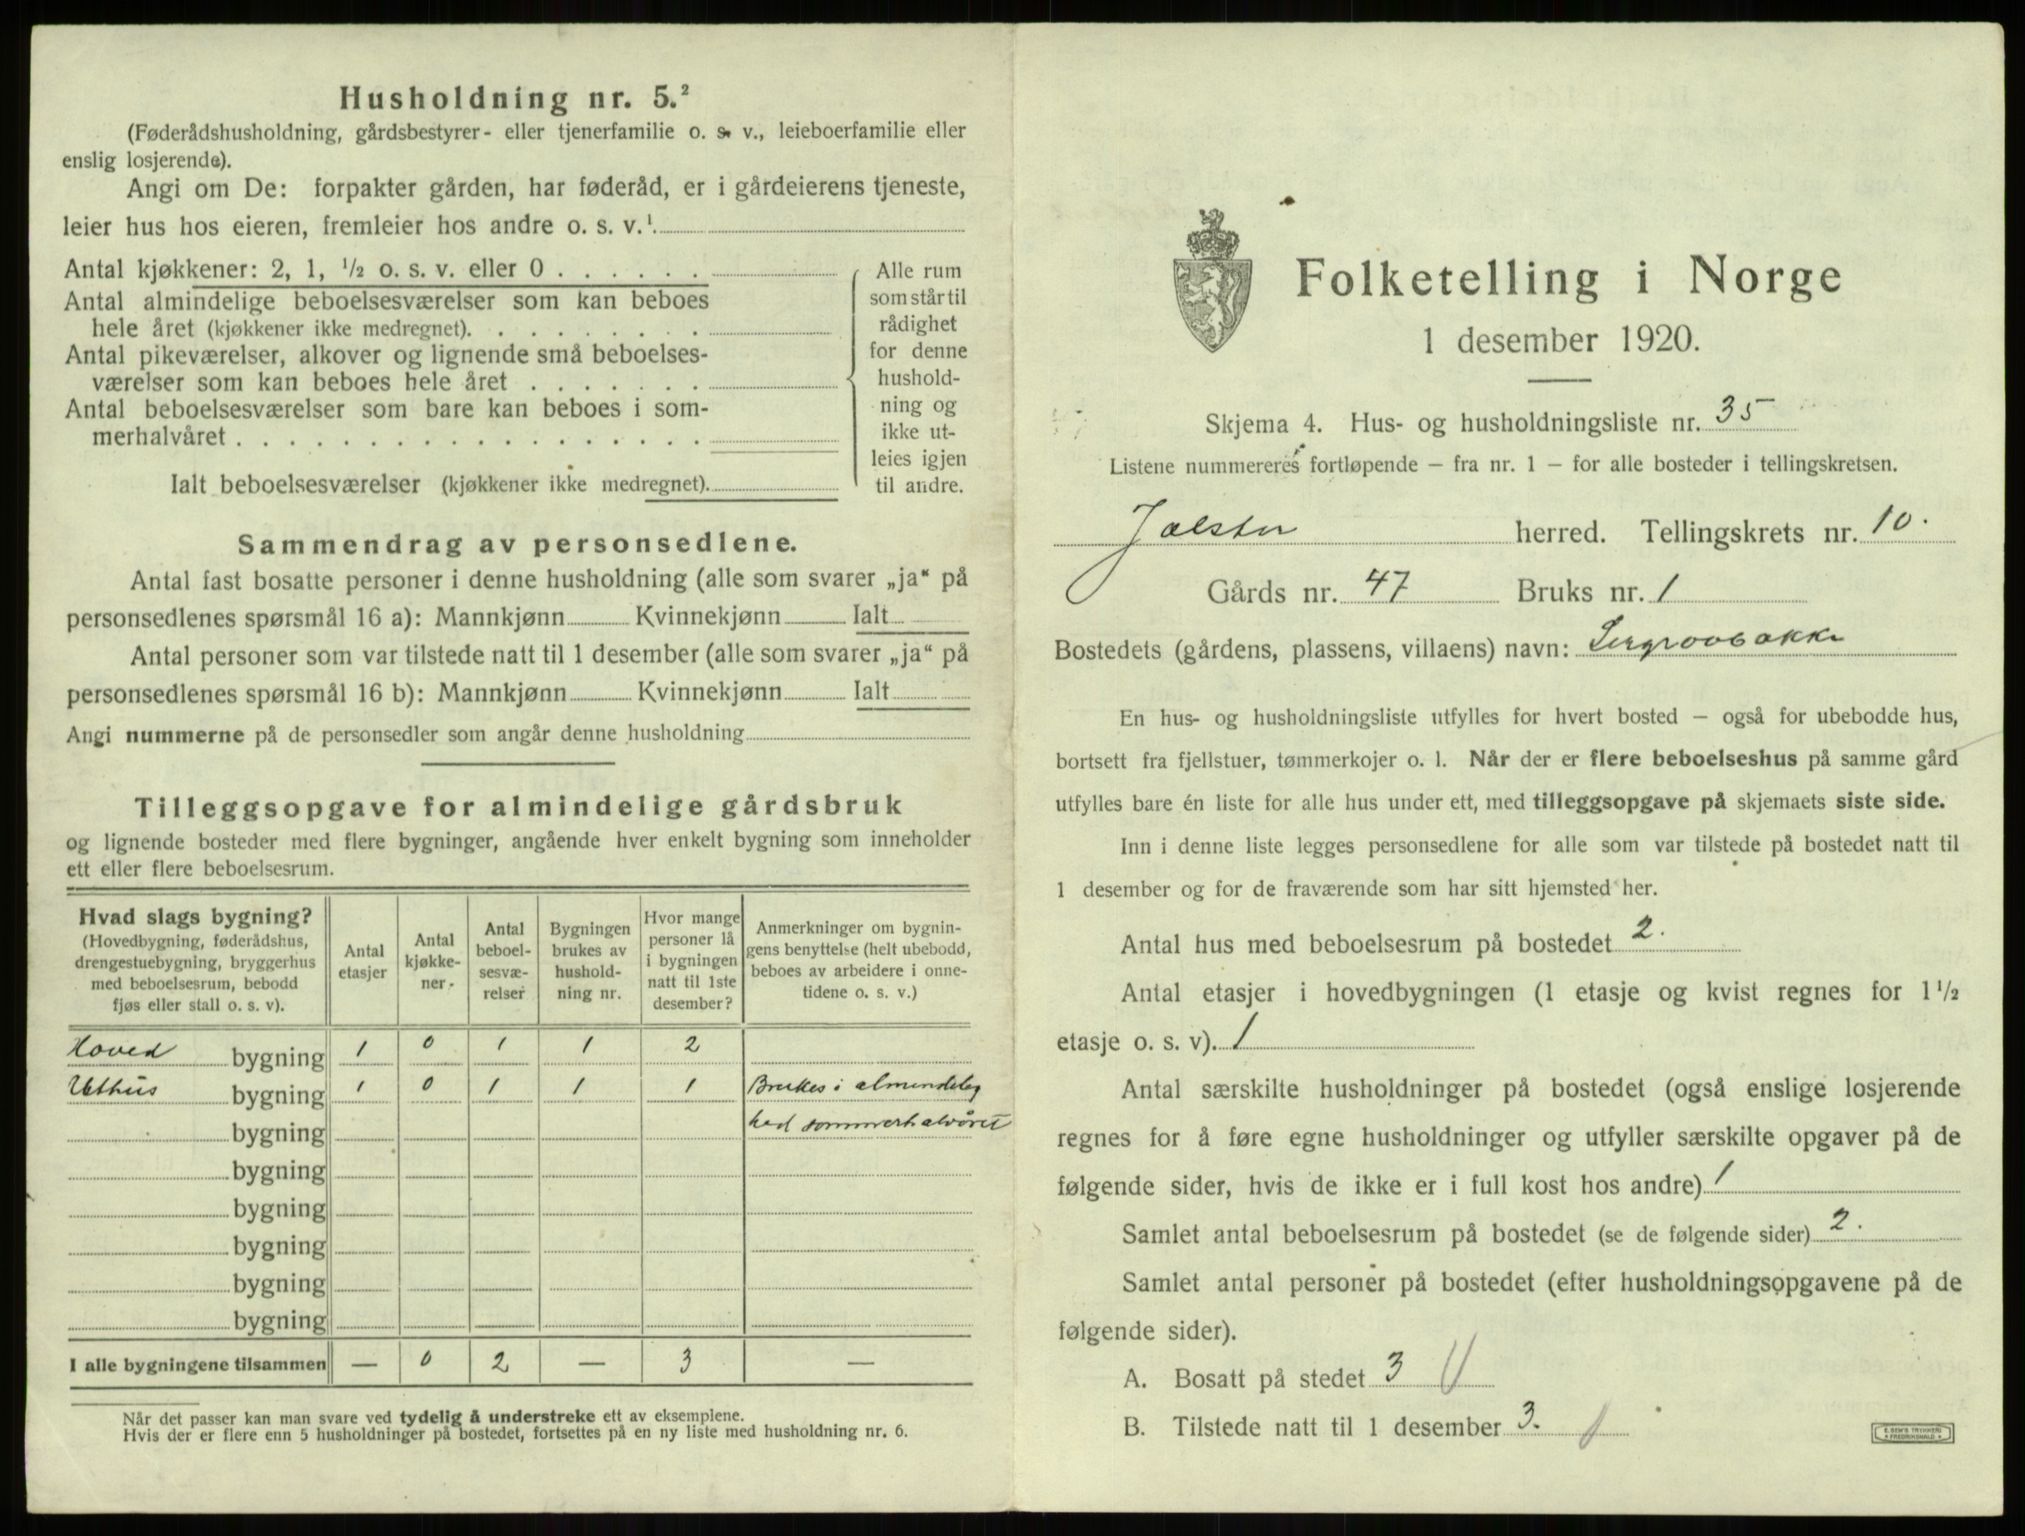 Husholdning nr. 5.²
(Føderådshusholdning, gårdsbestyrer- eller tjenerfamilie o. s. v., leieboerfamilie eller
enslig losjerende).
Angi om De: forpakter gården, har føderåd, er i gårdeierens tjeneste,
leier hus hos eieren, fremleier hos andre o. s. v.¹
Antal kjøkkener: 2, 1, ½ o. s. v. eller 0 . . . . . .
Antal almindelige beboelsesværelser som kan beboes
hele året (kjøkkener ikke medregnet). . . . . . . . .
Antal pikeværelser, alkover og lignende små beboelses-
værelser som kan beboes hele året . . . . . . .
Antal beboelsesværelser som bare kan beboes i som-
merhalvåret . . . . . . . . . . . . . . . . . .
Ialt beboelsesværelser (kjøkkener ikke medregnet).
Alle rum
som står til
rådighet
for denne
hushold-
ning og
ikke ut-
leies igjen
til andre.
Sammendrag av personsedlene.
Antal fast bosatte personer i denne husholdning (alle som svarer „ja“ på
personsedlenes spørsmål 16 a): Mannkjønn Kvinnekjønn Ialt
Antal personer som var tilstede natt til 1 desember (alle som svarer „ja“ på
personsedlenes spørsmål 16 b): Mannkjønn Kvinnekjønn Ialt
Angi nummerne på de personsedler som angår denne husholdning
Tilleggsopgave for almindelige gårdsbruk
og lignende bosteder med flere bygninger, angående hver enkelt bygning som inneholder
ett eller flere beboelsesrum.
Hvad slags bygning?
(Hovedbygning, føderådshus,
drengestuebygning, bryggerhus
med beboelsesrum, bebodd
fjøs eller stall o. s. v).
Antal
etasjer
Antal
kjøkke-
ner.
Antal
beboel-
sesvæ-
relser
Bygningen
brukes av
hushold-
ning nr.
Hvor mange
personer lå
i bygningen
natt til 1ste
desember?
Anmerkninger om bygnin-
gens benyttelse (helt ubebodd,
beboes av arbeidere i onne-
tidene o. s. v.)
Hoved bygning 1 0 1 1 2
Uthus bygning 1 0 1 1 1 Brukes i almindeleg
bygning ked sommerhalvåret
bygning
bygning
bygning
bygning
bygning
I alle bygningene tilsammen — 0 2 — 3 —
Når det passer kan man svare ved tydelig å understreke ett av eksemplene.
Hvis der er flere enn 5 husholdninger på bostedet, fortsettes på en ny liste med husholdning nr. 6.
Folketelling i Norge
1 desember 1920.
Skjema 4. Hus- og husholdningsliste nr. 35
Listene nummereres fortløpende – fra nr. 1 – for alle bosteder i tellingskretsen.
Jølster herred. Tellingskrets nr. 10.
Gårds nr. 47 Bruks nr. 1
Bostedets (gårdens, plassens, villaens) navn:
En hus- og husholdningsliste utfylles for hvert bosted – også for ubebodde hus,
bortsett fra fjellstuer, tømmerkojer o. l. Når der er flere beboelseshus på samme gård
utfylles bare én liste for alle hus under ett, med tilleggsopgave på skjemaets siste side.
Inn i denne liste legges personsedlene for alle som var tilstede på bostedet natt til
1 desember og for de fraværende som har sitt hjemsted her.
Antal hus med beboelsesrum på bostedet 2.
Antal etasjer i hovedbygningen (1 etasje og kvist regnes for 1½
etasje o. s. v). 1
Antal særskilte husholdninger på bostedet (også enslige losjerende
regnes for å føre egne husholdninger og utfyller særskilte opgaver på de
følgende sider, hvis de ikke er i full kost hos andre) 1
Samlet antal beboelsesrum på bostedet (se de følgende sider) 2.
Samlet antal personer på bostedet (efter husholdningsopgavene på de
følgende sider).
A. Bosatt på stedet 3
B. Tilstede natt til 1 desember 3.
E. SEM'S TRYKKERI
FREDRIKSHALD